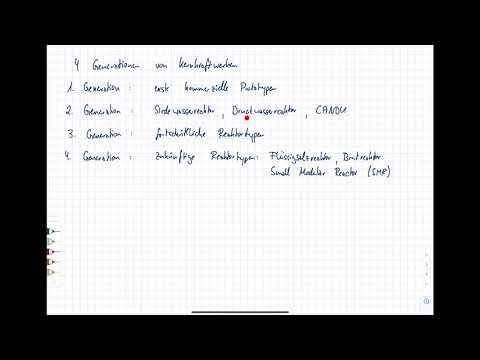 4 Generationen von Kernkraftwerken
1. Generation : erste kommerzielle Prototypen
2. Generation : Siedewasserreaktor , Druckwasserreaktor , CANDU
3. Generation : fortschrittliche Reaktortypen
4. Generation : zukünftige Reaktortypen : Flüssigsalzreaktor , Brutreaktor
Small Modular Reactor (SMR)